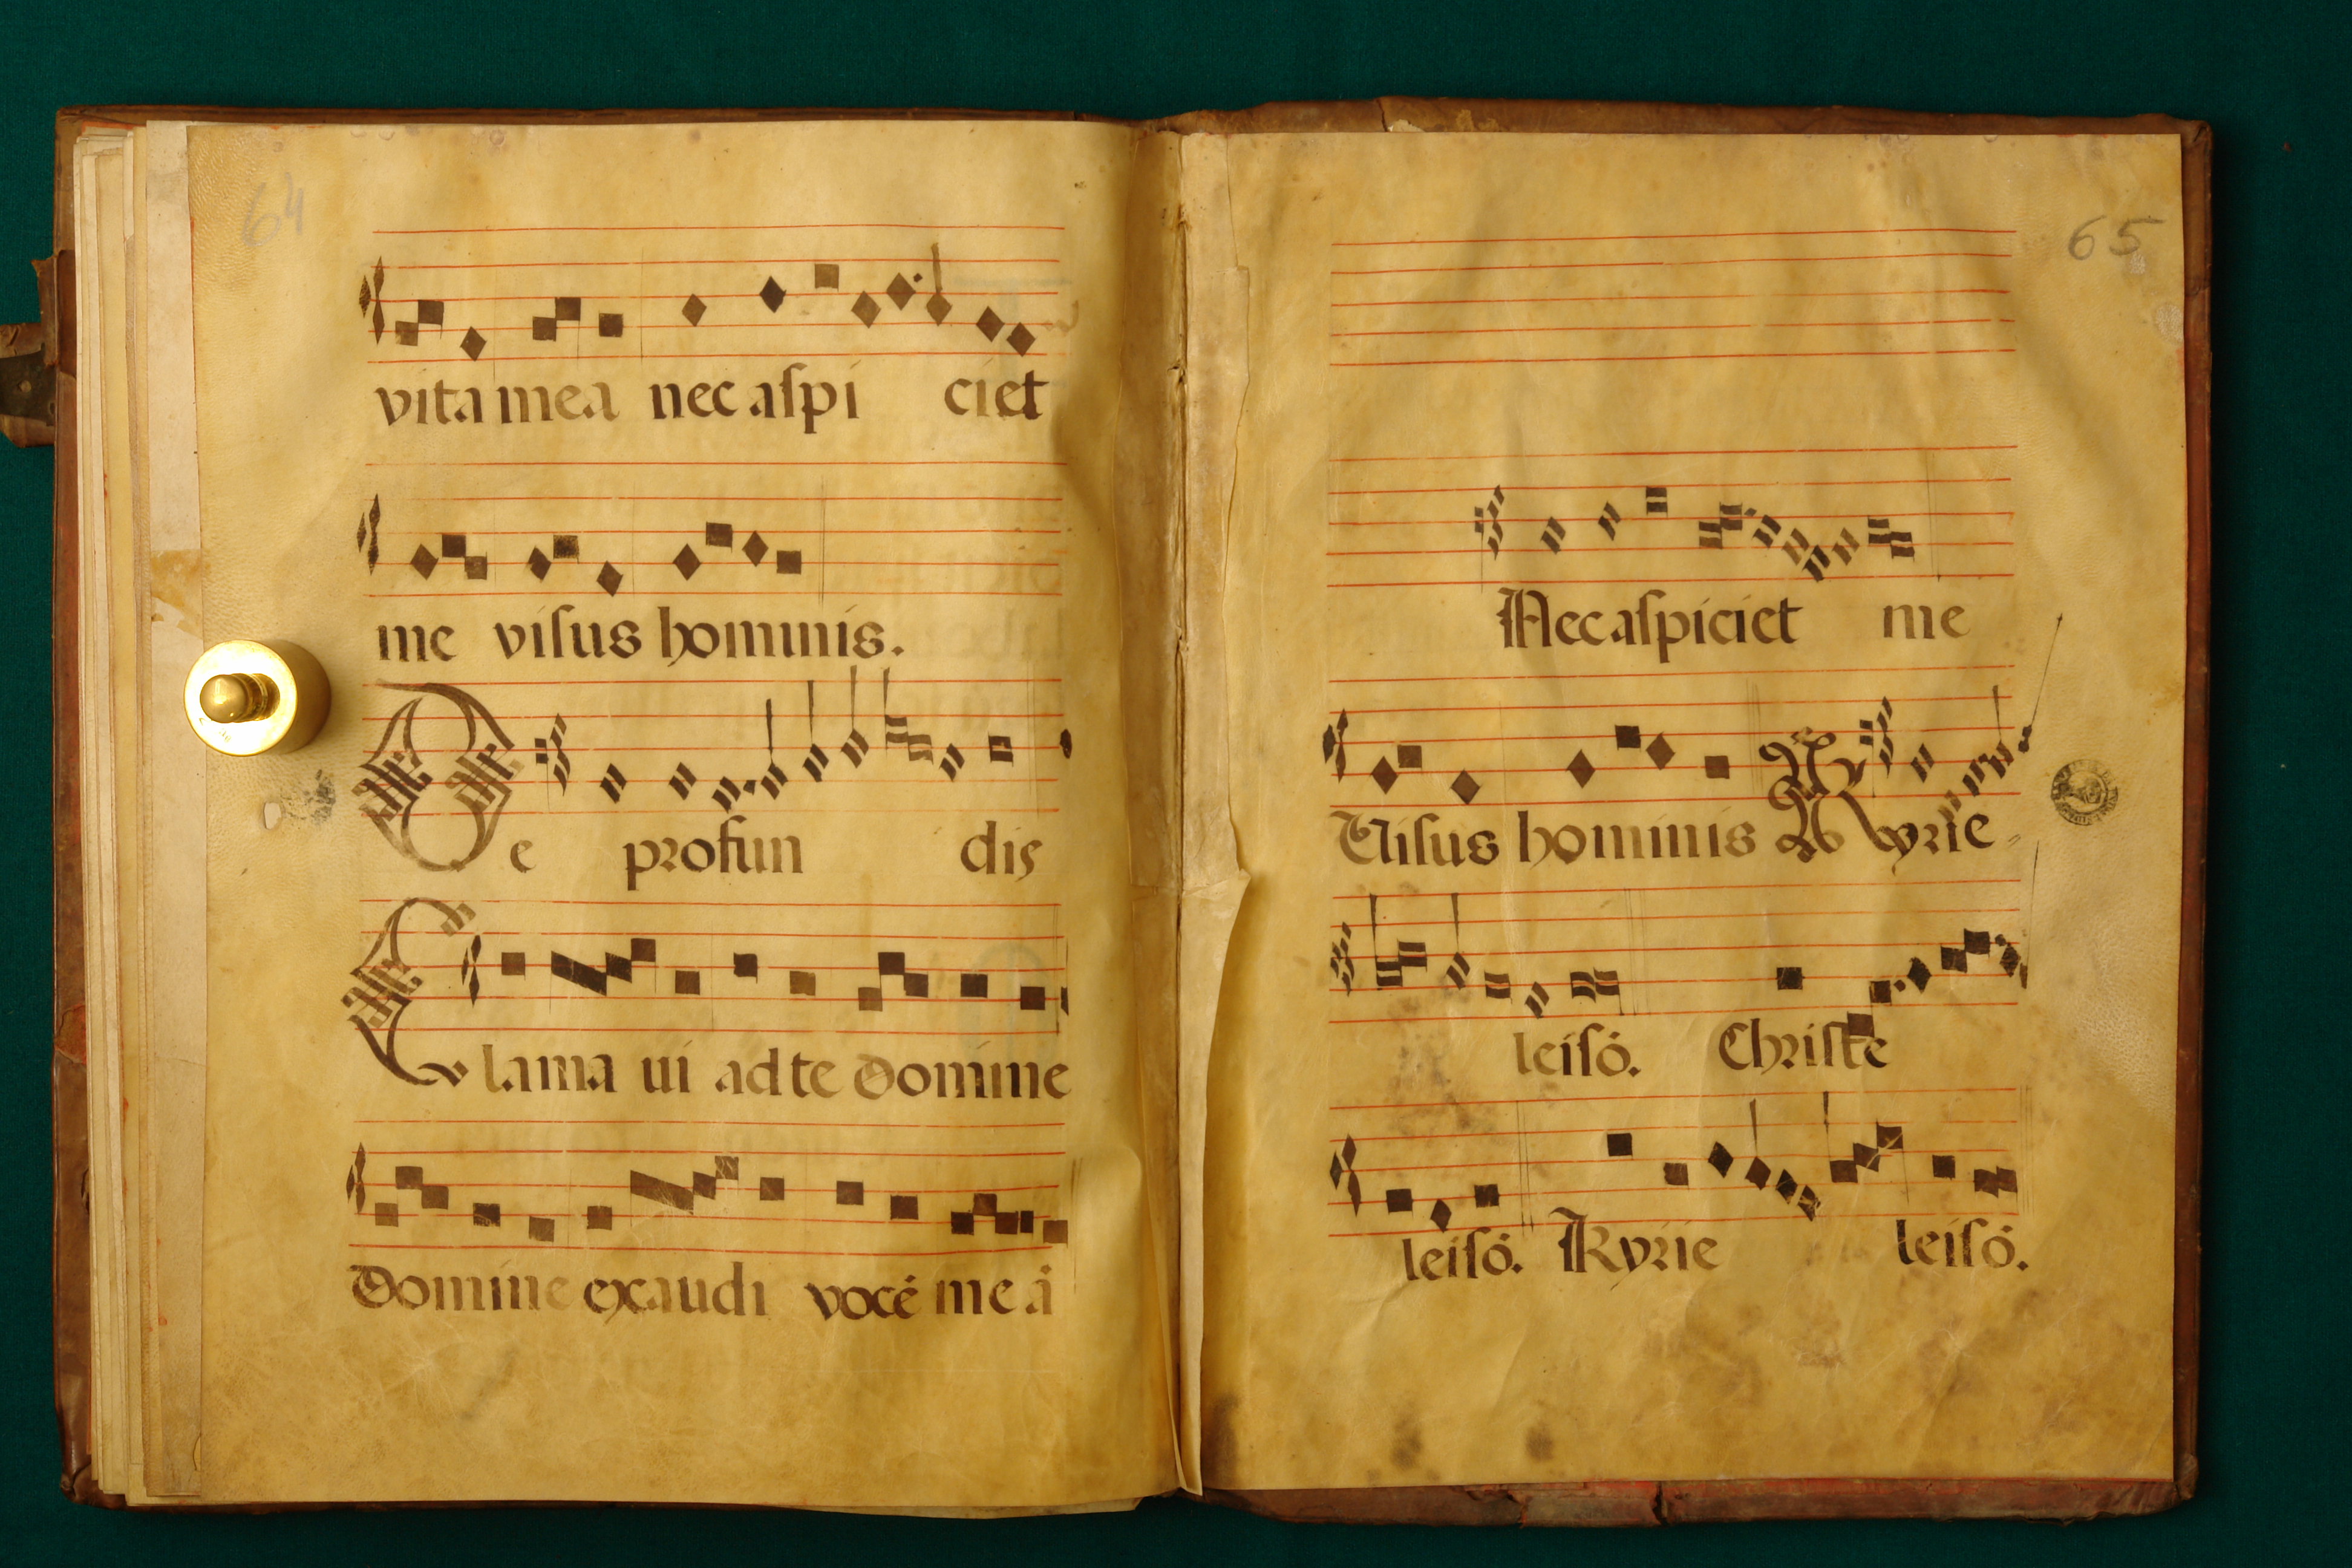 64
vita mea nec aſpi ciet
me viſus hominis.
De profun dis
Clama ui ad te Domine
Domine exaudi vocē me ā
65
Nec aſpiciet me
Viſus hominis Kyrie
leiſō. Chriſte
leiſō. Kyrie leiſō.